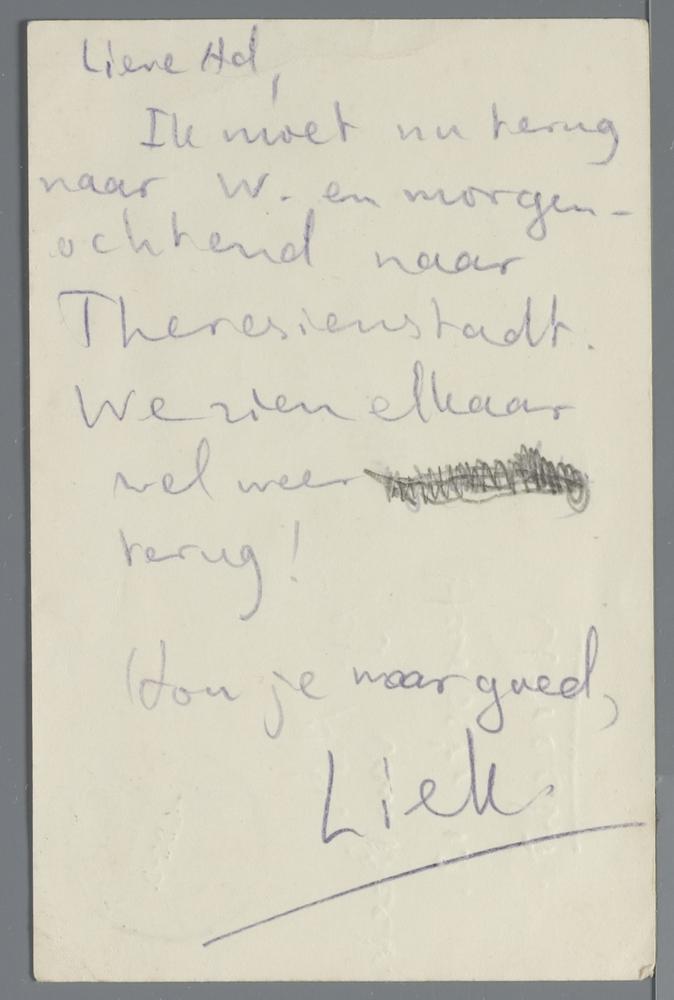 Lieve Ad,
Ik moet nu terug
naar W. en morgen-
ochtend naar
Theresienstadt.
We zien elkaar
wel weer
terug!
Hou je maar goed,
Liek.